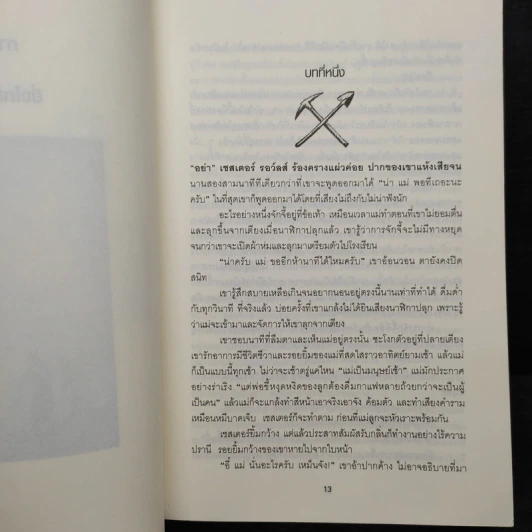 บทที่หนึ่ง
"อย่า" เชสเตอร์ รอว์ลส์ ร้องครางแผ่วค่อย ปากของเขาแห้งเสียจน
นานสองสามนาทีทีเดียวกว่าที่เขาจะพูดออกมาได้ "น่า แม่ พอทีเถอะนะ
ครับ" ในที่สุดเขาก็พูดออกมาได้โดยที่เสียงไม่ถึงกับไม่น่าฟังนัก
อะไรอย่างหนึ่งจักจี้อยู่ที่ข้อเท้า เหมือนเวลาแม่ทำตอนที่เขาไม่ยอมตื่น
และลุกขึ้นจากเตียงเมื่อนาฬิกาปลุกแล้ว เขารู้ว่าการจักจี้จะไม่มีทางหยุด
จนกว่าเขาจะเปิดผ้าห่มและลุกมาเตรียมตัวไปโรงเรียน
"น่าครับ แม่ ขออีกห้านาทีได้ไหมครับ" เขาอ้อนวอน ตายังคงปิด
สนิท
เขารู้สึกสบายเหลือเกินจนอยากนอนอยู่ตรงนี้นานเท่าที่ทำได้ ดื่มด่ำ
กับทุกวินาที ที่จริงแล้ว บ่อยครั้งที่เขาแกล้งไม่ได้ยินเสียงนาฬิกาปลุก เพราะรู้
ว่าแม่จะเข้ามาและจัดการให้เขาลุกจากเตียง
เขาชอบนาทีที่ลืมตาและเห็นแม่อยู่ตรงนั้น ชะโงกตัวอยู่ที่ปลายเตียง
เขารักอาการมีชีวิตชีวาและรอยยิ้มของแม่ที่สดใสราวอาทิตย์ยามเช้า แล้วแม่
ก็เป็นแบบนี้ทุกเช้า ไม่ว่าจะเช้าตรู่แค่ไหน "แม่เป็นมนุษย์เช้า" แม่มักประกาศ
อย่างร่าเริง "แต่พ่อขี้หงุดหงิดของลูกต้องดื่มกาแฟหลายถ้วยกว่าจะเป็นผู้
เป็นคน" แล้วแม่ก็จะแกล้งทำสีหน้าเอาจริงเอาจัง ค้อมตัว และทำเสียงคำราม
เหมือนหมีบาดเจ็บ เชสเตอร์ก็จะทำตาม ก่อนที่แม่ลูกจะหัวเราะพร้อมกัน
เชสเตอร์ยิ้มกว้าง แต่แล้วประสาทสัมผัสรับกลิ่นก็ทำงานอย่างไร้ความ
ปรานี รอยยิ้มกว้างของเขาหายไปจากใบหน้า
"อี๋ แม่ นั่นอะไรครับ เหม็นจัง!" เขาอ้าปากค้าง ไม่อาจอธิบายที่มา
13